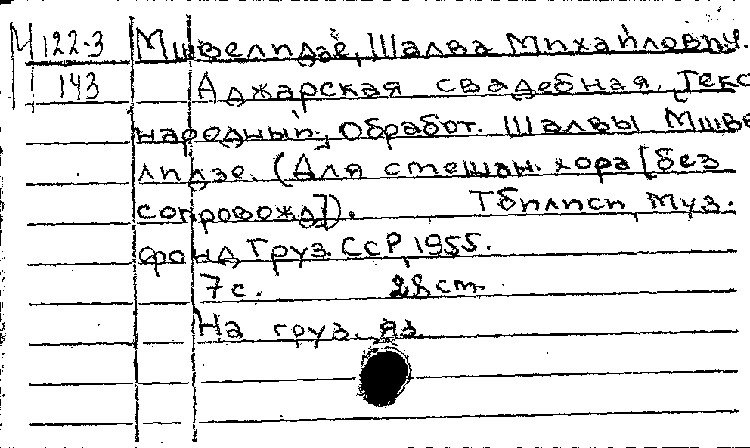 М 122-3 Мшвелидзе, Шалва Михайлович.
143 Аджарская свадебная. Текс
народный, обработ. Шалвы Мшве
лидзе. (Для смешан. хора [без
сопровожд]). Тбилиси, Муз.
фонд Груз. ССР, 1955.
7 с. 28 см.
На груз. яз.